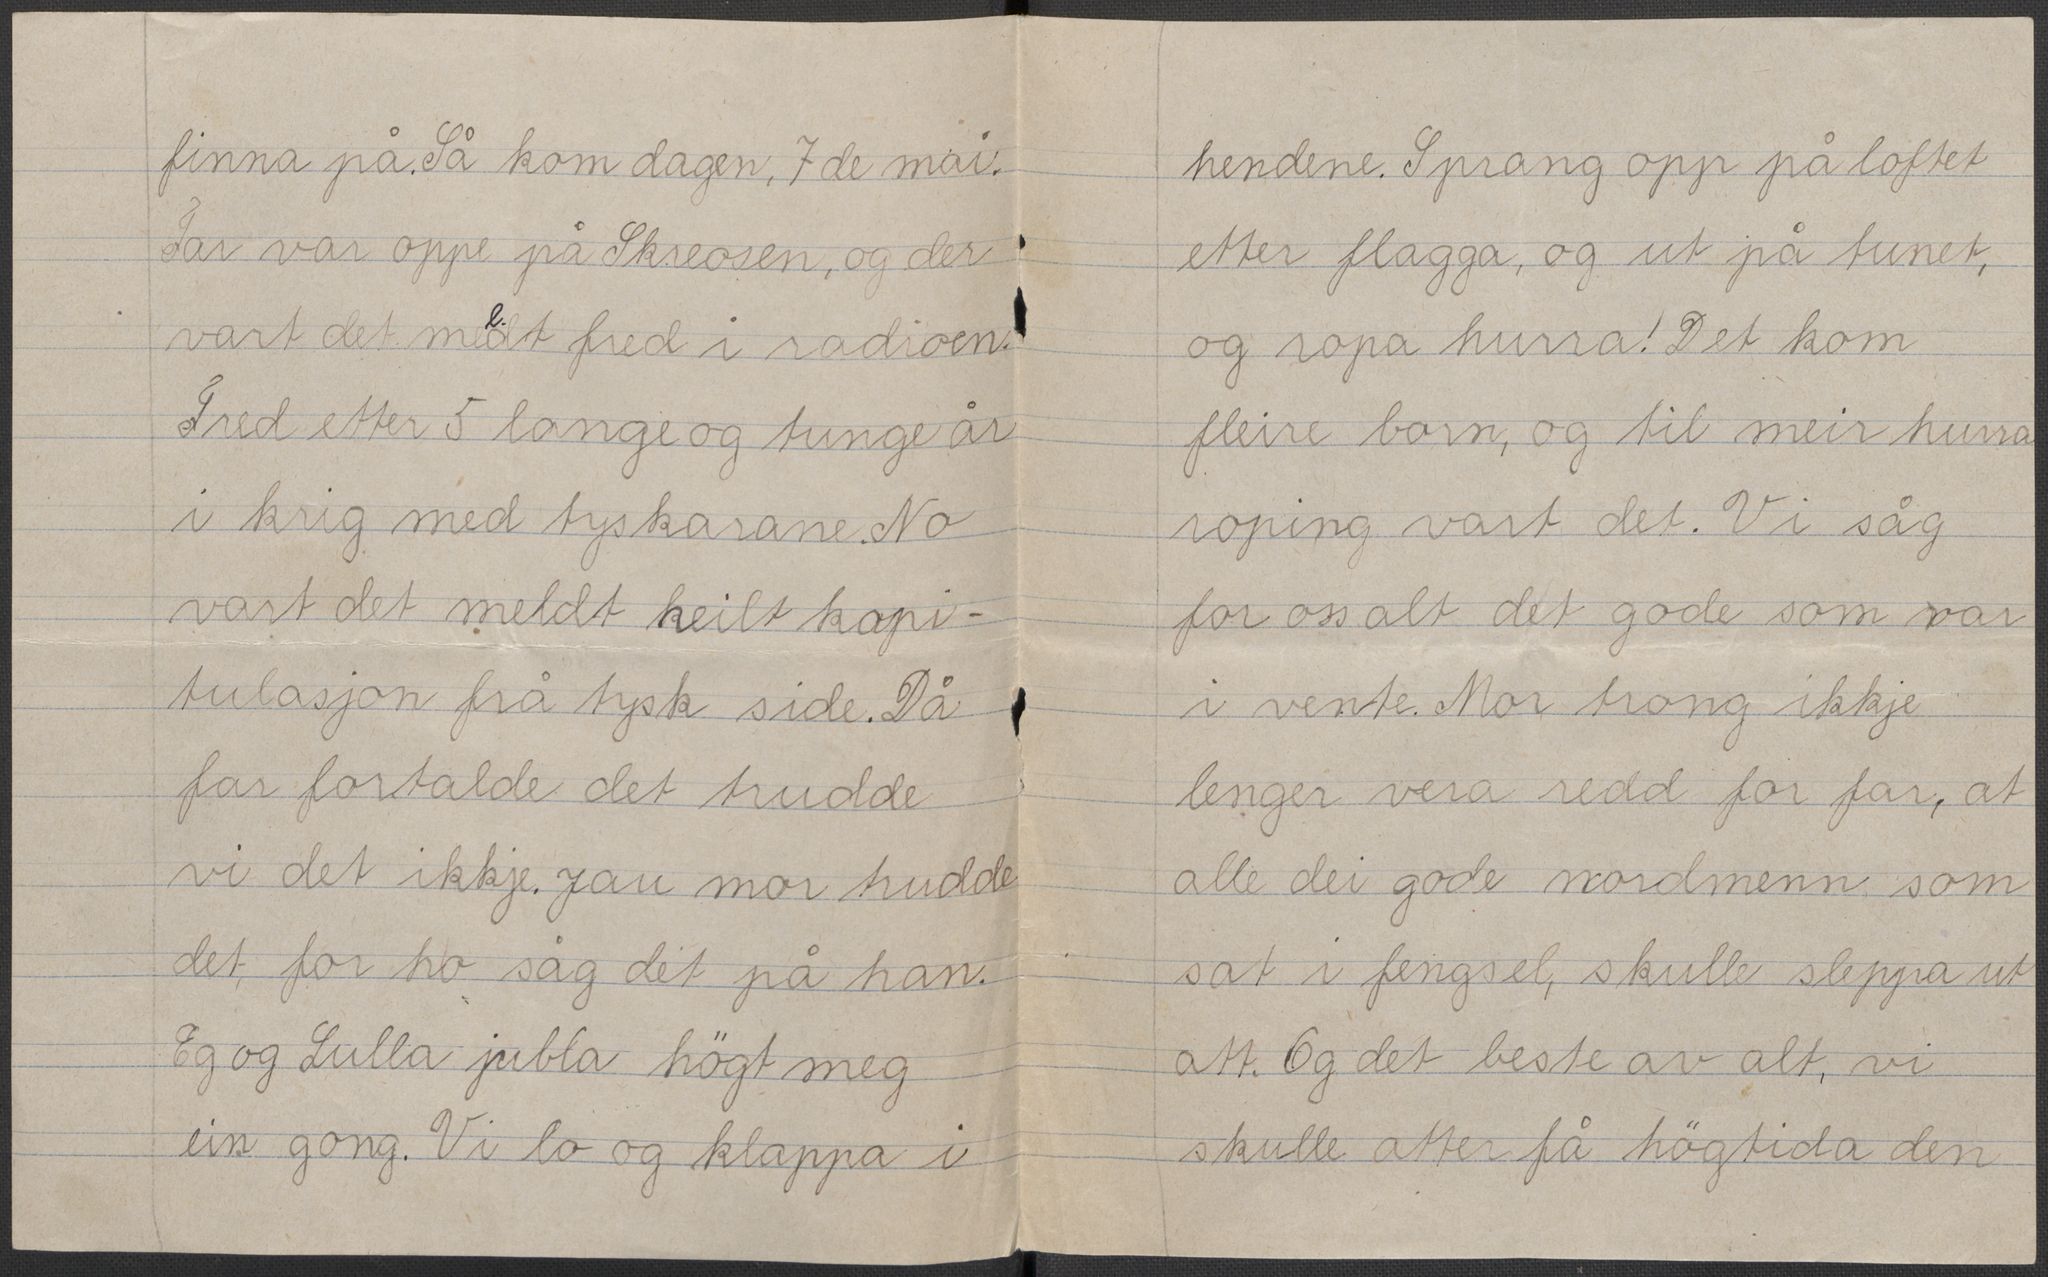 finna på. Så kom dagen, 7 de mai.
Far var oppe på Skreosen, og der
vart det meldt fred i radioen.
Fred etter 5 lange og tunge år
i krig med tyskarane. No
vart det meldt heilt kapi-
tulasjon frå tysk side. Då
far fortalde det trudde
vi det ikkje. Jau mor trudde
det, for ho såg det på han.
Eg og Lulla jubla högt meg
ein gong. Vi lo og klappa i
hendene. Sprang opp på loftet
etter flagga, og ut på tunet,
og ropa hurra! Det kom
fleire born, og til meir hurra
roping vart det. Vi såg
for oss alt det gode som var
i vente. Mor trong ikkje
lenger vera redd for far, at
alle dei gode nordmenn som
sat i fengsel, skulle sleppa ut
att. Og det beste av alt, vi
skulle atter få högtida den